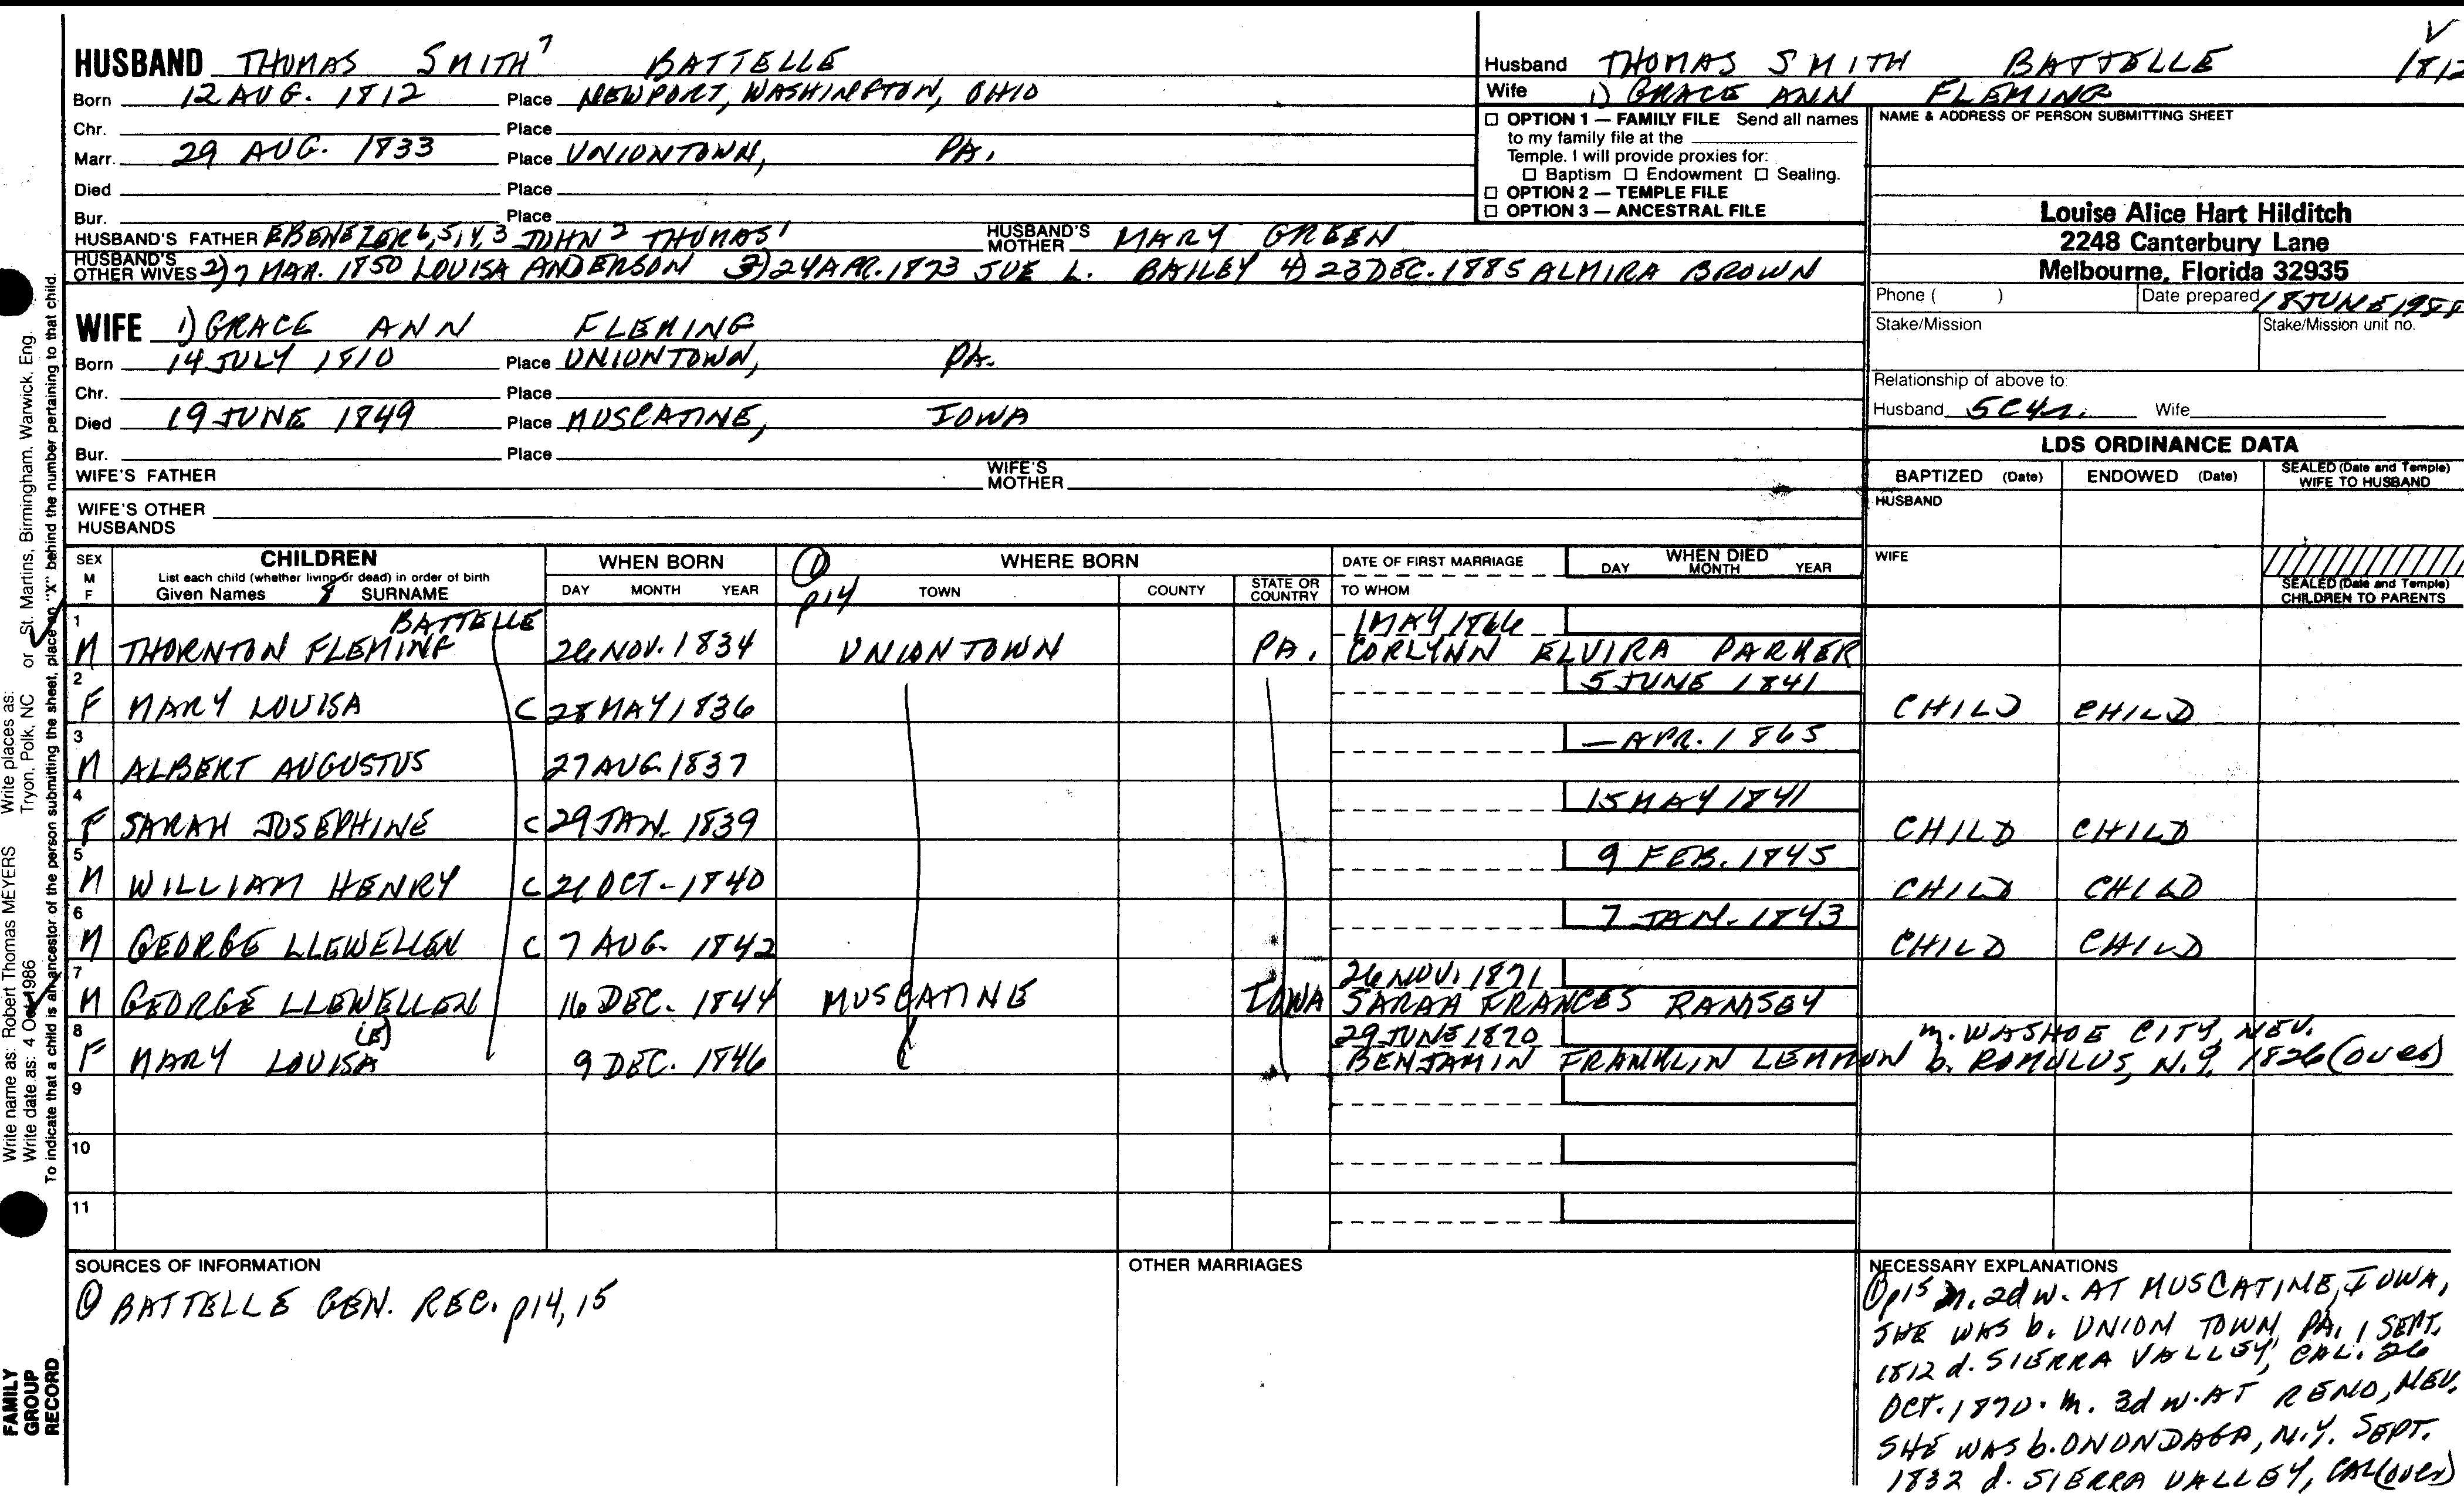 HUSBAND THOMAS SMITH 7 BATTELLE
Born 12 AUG. 1812 Place NEWPORT, WASHINGTON, OHIO
Chr. Place
Marr. 29 AUG. 1833 Place UNIONTOWN, PA.
Died Place
Bur. Place
HUSBAND'S FATHER EBENEZER 6,5,4,3 JOHN 2 THOMAS 1 HUSBAND'S MOTHER MARY GREEN
HUSBAND'S OTHER WIVES 2) 7 MAR. 1850 LOUISA ANDERSON 3) 24 APR. 1873 SUE L. BAILEY 4) 23 DEC. 1885 ALMIRA BROWN
WIFE 1) GRACE ANN FLEMING
Born 14 JULY 1810 Place UNIONTOWN, PA.
Chr. Place
Died 19 JUNE 1849 Place MUSCATINE, IOWA
Bur. Place
WIFE'S FATHER WIFE'S MOTHER
WIFE'S OTHER HUSBANDS
V
1812
Husband THOMAS SMITH BATTELLE
Wife 1) GRACE ANN FLEMING
☐ OPTION 1 — FAMILY FILE Send all names
to my family file at the
Temple. I will provide proxies for:
☐ Baptism ☐ Endowment ☐ Sealing.
☐ OPTION 2 — TEMPLE FILE
☐ OPTION 3 — ANCESTRAL FILE
NAME & ADDRESS OF PERSON SUBMITTING SHEET
Louise Alice Hart Hilditch
2248 Canterbury Lane
Melbourne, Florida 32935
Phone ( ) Date prepared 18 JUNE 1988
Stake/Mission Stake/Mission unit no.
Relationship of above to:
Husband 5C4r. Wife
LDS ORDINANCE DATA
BAPTIZED (Date) ENDOWED (Date) SEALED (Date and Temple) WIFE TO HUSBAND
HUSBAND
WIFE
SEALED (Date and Temple) CHILDREN TO PARENTS
SEX M F
CHILDREN
List each child (whether living or dead) in order of birth
Given Names 8 SURNAME
WHEN BORN
DAY MONTH YEAR
① p14
WHERE BORN
TOWN COUNTY STATE OR COUNTRY
DATE OF FIRST MARRIAGE
TO WHOM
WHEN DIED
DAY MONTH YEAR
BATTELLE 1 MAY 1866
1 M THORNTON FLEMING 26 NOV. 1834 UNIONTOWN PA. CORLYNN ELVIRA PARKER
5 JUNE 1841
2 F MARY LOUISA C 28 MAY 1836 CHILD CHILD
— APR. 1865
3 M ALBERT AUGUSTUS 27 AUG. 1837
15 MAY 1841
4 F SARAH JOSEPHINE C 29 JAN. 1839 CHILD CHILD
9 FEB. 1845
5 M WILLIAM HENRY C 21 OCT- 1840 CHILD CHILD
7 JAN. 1843
6 M GEORGE LLEWELLEN C 7 AUG. 1842 CHILD CHILD
26 NOV. 1871
7 M GEORGE LLEWELLEN 16 DEC. 1844 MUSCATINE IOWA SARAH FRANCES RAMSEY
(E) 29 JUNE 1870 m. WASHOE CITY, NEV.
8 F MARY LOUISA 9 DEC. 1846 BENJAMIN FRANKLIN LEMMON b. ROMULUS, N.Y. 1826 (over)
9
10
11
SOURCES OF INFORMATION
① BATTELLE GEN. REC. p14, 15
OTHER MARRIAGES
NECESSARY EXPLANATIONS
① p15 m. 2d w. AT MUSCATINE, IOWA,
SHE WAS b. UNION TOWN, PA. 1 SEPT.
1812 d. SIERRA VALLEY, CAL. 26
OCT. 1870. m. 3d w. AT RENO, NEV.
SHE WAS b. ONONDAGA, N.Y. SEPT.
1832 d. SIERRA VALLEY, CAL (over)
Write name as: Robert Thomas MEYERS Write places as:
Write date as: 4 Oct 1986 Tryon, Polk, NC or St. Martins, Birmingham, Warwick, Eng.
To indicate that a child is an ancestor of the person submitting the sheet, place an "X" behind the number pertaining to that child.
FAMILY
GROUP
RECORD